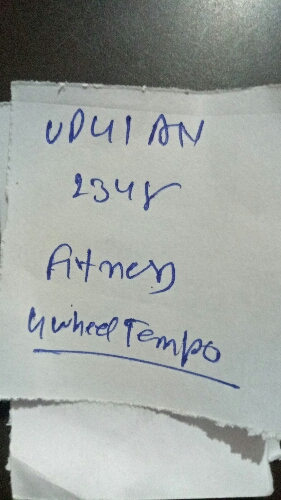 UP41AN
2348
Fitness
4 wheel Tempo